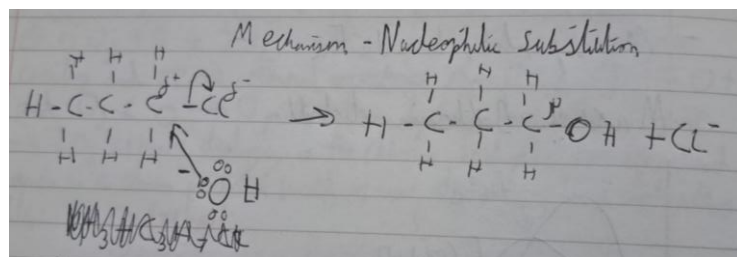 Mechanism - Nucleophilic substitution
H H H
H - C - C - C δ+ - Cl δ- → H - C - C - C - OH + Cl-
H H H
H H H
- OH